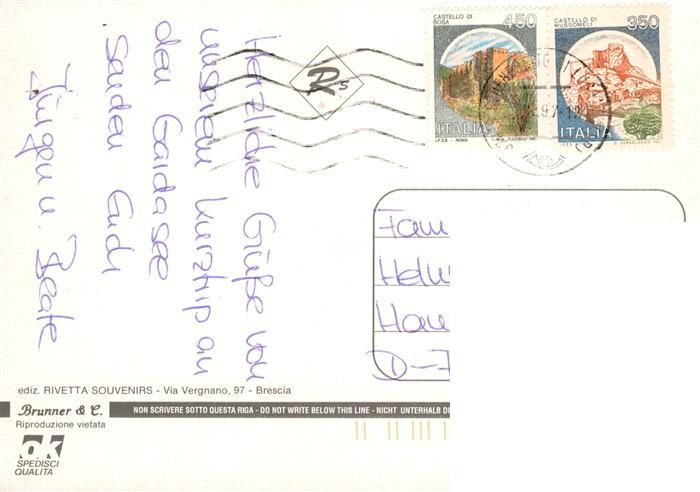 CASTELLO DI BOSA
450
ITALIA
I.P.Z.S. - ROMA
CASTELLO DI MUSSOMELI
350
ITALIA
R5
Herzliche Grüße von
unserem Kurztrip an
den Gardasee
senden Euch
Jürgen u. Beate
Fam
Helm
Hau
D-7
ediz. RIVETTA SOUVENIRS - Via Vergnano, 97 - Brescia
Brunner & C.
Riproduzione vietata
NON SCRIVERE SOTTO QUESTA RIGA - DO NOT WRITE BELOW THIS LINE - NICHT UNTERHALB DI
ok
SPEDISCI
QUALITÀ